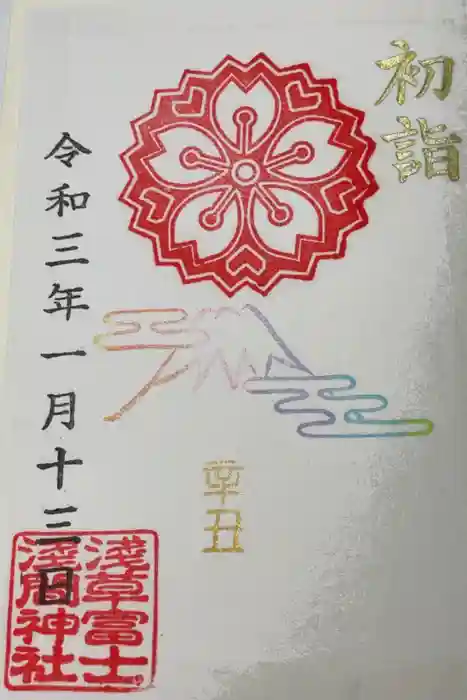 初詣
辛丑
令和三年一月十三日
淺草富士
淺間神社